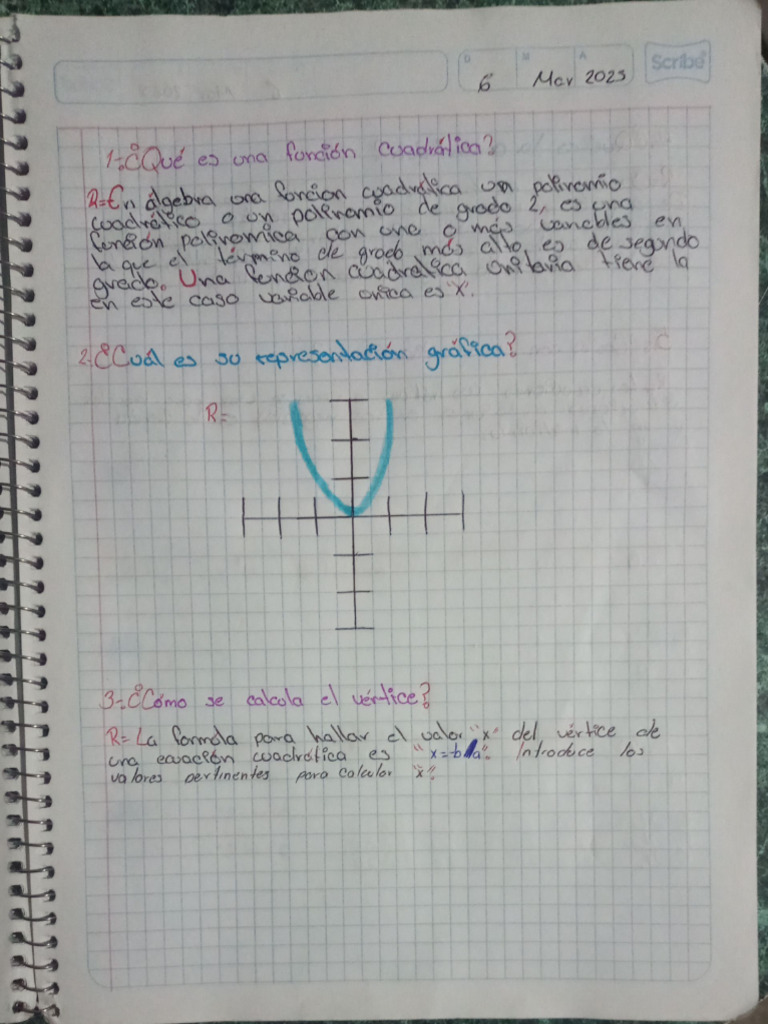 D M A
6 Mar 2023
Scribe
1-¿Qué es una función cuadrática?
R=En álgebra una forcion cuadrática un polinomio
cuadrático o un polinomio de grado 2, es una
función polinomica con una o más variables en
la que el término de grado más alto es de segundo
grado. Una función cuadratica unitaria tiene la
en este caso variable unica es "x".
2-¿Cuál es su representación gráfica?
R=
3-¿Cómo se calcula el vértice?
R= La formola para hallar el valor "x" del vértice de
una ecuación cuadrática es "x=b/a". Introduce los
valores pertinentes para calcular "x".